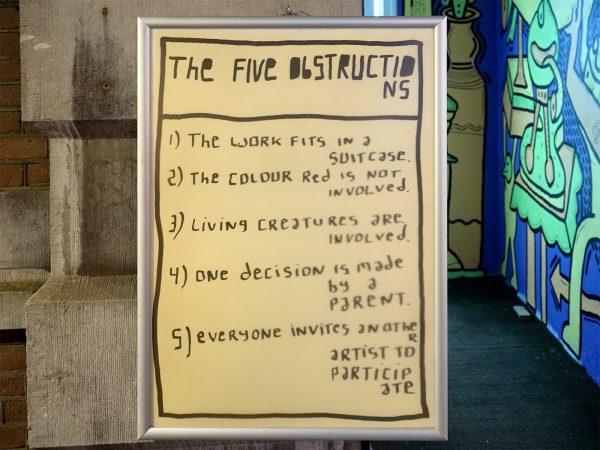 The FIVE ObSTRUCTIO
NS
1) The WORK FITS IN a
SUITCASE.
2) The COLOUR Red IS NOT
INVOLVED.
3) LIVING CREATURES aRE
INVOLVED.
4) ONE decISION IS MaDE
by a
PARENT.
5) eVERYONE INVITES aNOTHe
R
aRTIST TO
PaRTICIP
aTE